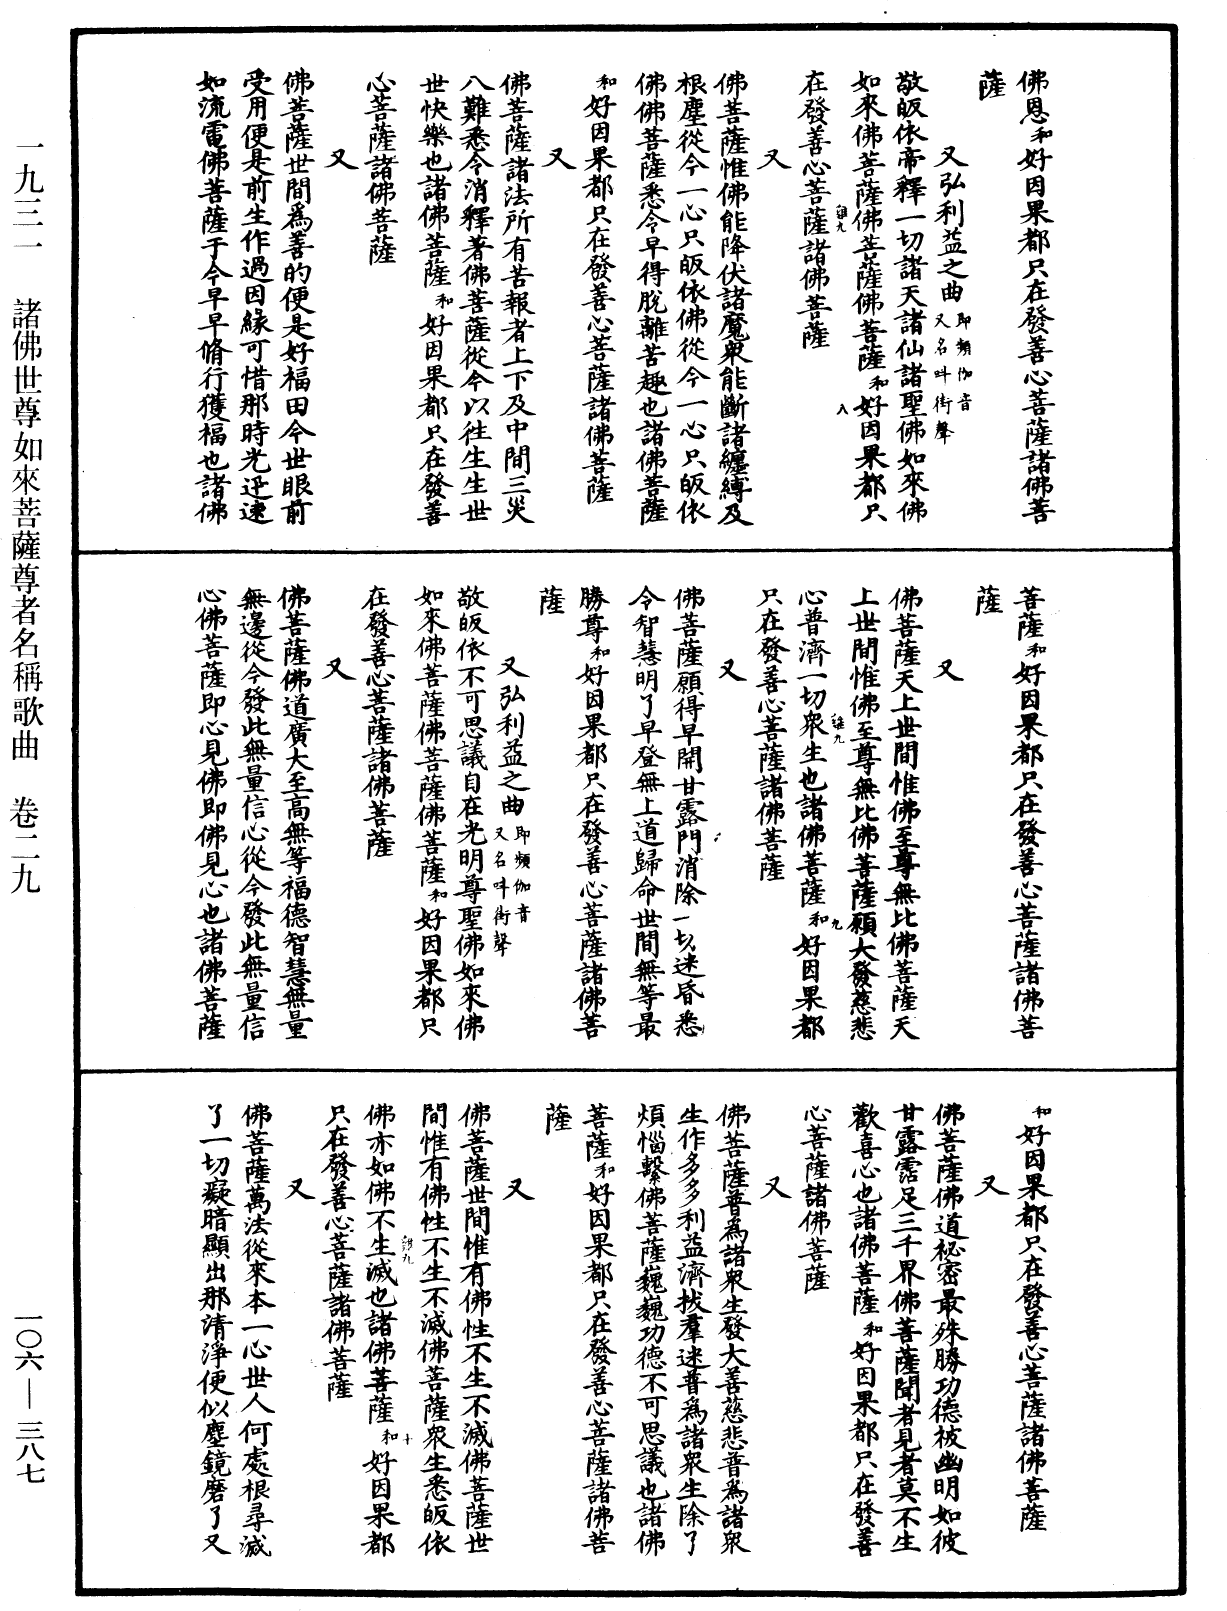 佛恩和好因果都只在發善心菩薩諸佛菩
薩
又弘利益之曲即頻伽音又名呌街聲
敬皈依帝釋一切諸天諸仙諸聖佛如來佛
如來佛菩薩佛菩薩佛菩薩和好因果都只
在發善心菩薩諸佛菩薩
又
佛菩薩惟佛能降伏諸魔衆能斷諸纏縛及
根塵從今一心只皈依佛從今一心只皈依
佛佛菩薩悉令早得脫離苦趣也諸佛菩薩
和好因果都只在發善心菩薩諸佛菩薩
又
佛菩薩諸法所有苦報者上下及中間三災
八難悉令消釋著佛菩薩從今以徃生生世
世快樂也諸佛菩薩和好因果都只在發善
心菩薩諸佛菩薩
又
佛菩薩世間爲善的便是好福田今世眼前
受用便是前生作過因緣可惜那時光迅速
如流電佛菩薩于今早早脩行獲福也諸佛
菩薩和好因果都只在發善心菩薩諸佛菩
薩
又
佛菩薩天上世間惟佛至尊無比佛菩薩天
上世間惟佛至尊無比佛菩薩願大發慈悲
心普濟一切衆生也諸佛菩薩和好因果都
只在發善心菩薩諸佛菩薩
又
佛菩薩願得早開甘露門消除一切迷昏悉
令智慧明了早登無上道歸命世間無等最
勝尊和好因果都只在發善心菩薩諸佛菩
薩
又弘利益之曲即頻伽音又名呌街聲
敬皈依不可思議自在光明尊聖佛如來佛
如來佛菩薩佛菩薩佛菩薩和好因果都只
在發善心菩薩諸佛菩薩
又
佛菩薩佛道廣大至高無等福德智慧無量
無邊從今發此無量信心從今發此無量信
心佛菩薩即心見佛即佛見心也諸佛菩薩
和好因果都只在發善心菩薩諸佛菩薩
又
佛菩薩佛道祕密最殊勝功德被幽明如彼
甘露霑足三千界佛菩薩聞者見者莫不生
歡喜心也諸佛菩薩和好因果都只在發善
心菩薩諸佛菩薩
又
佛菩薩普爲諸衆生發大善慈悲普爲諸衆
生作多多利益濟拔羣迷普爲諸衆生除了
煩惱繫佛菩薩巍巍功德不可思議也諸佛
菩薩和好因果都只在發善心菩薩諸佛菩
薩
又
佛菩薩世間惟有佛性不生不滅佛菩薩世
間惟有佛性不生不滅佛菩薩衆生悉皈依
佛亦如佛不生滅也諸佛菩薩和好因果都
只在發善心菩薩諸佛菩薩
又
佛菩薩萬法從來本一心世人何處根尋滅
了一切癡暗顯出那清淨便似塵鏡磨了又
一九三一 諸佛世尊如來菩薩尊者名稱歌曲 卷二九
一〇六—三八七